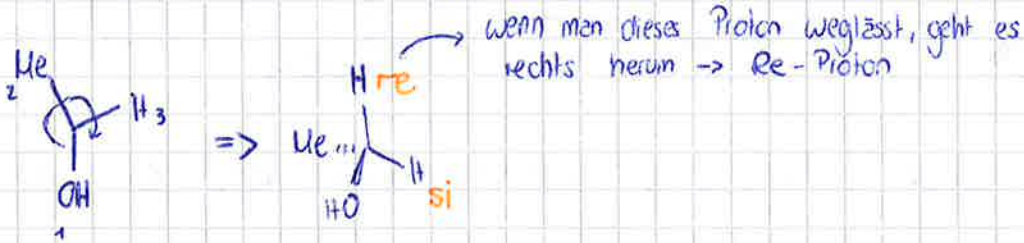 wenn man dieses Proton weglässt, geht es
rechts herum -> Re-Proton
Me
2
H 3
OH
1
=>
H re
Me
H
HO
si